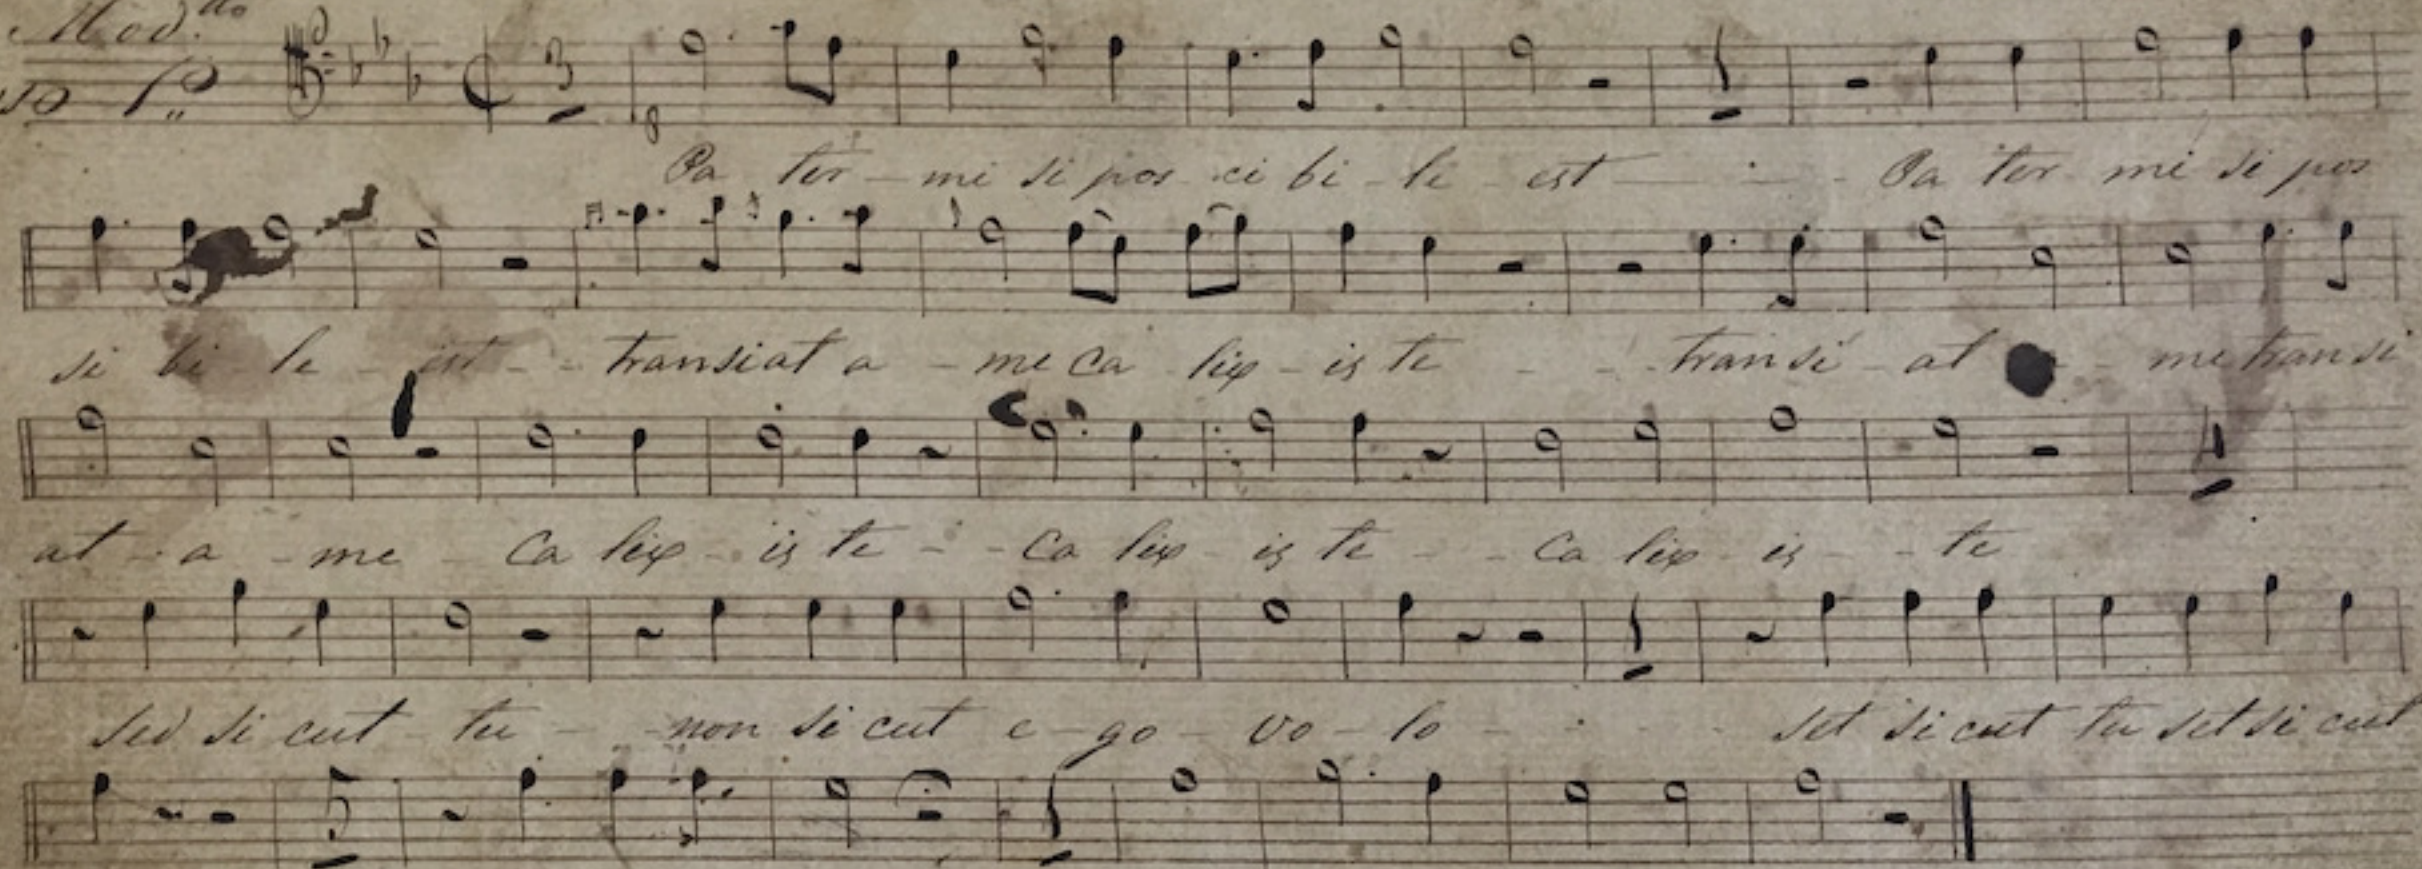 Mod.tto
3
Pa ter - mi si pos ci bi - le est - - - Pa ter mi si pos
si bi - le - est - - transiat a - me ca lix - is te - - transi - at - - me transi
at - a - me - Ca lix - is te - - Ca lix is te - - Ca lix - is - - te
4
sed si cut tu - - non si cut e - go - vo - lo - - - set si cut tu set si cut
5